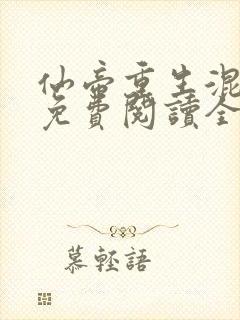 仙帝重生混
免費閱讀全
慕輕語